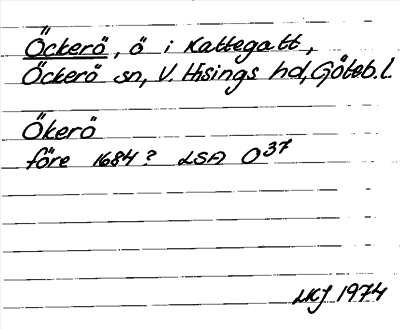 Öckerö, ö i Kattegatt,
Öckerö sn, V. Hisings hd, Göteb. l.
Ökerö
före 1684? LSA O37
LKJ 1974